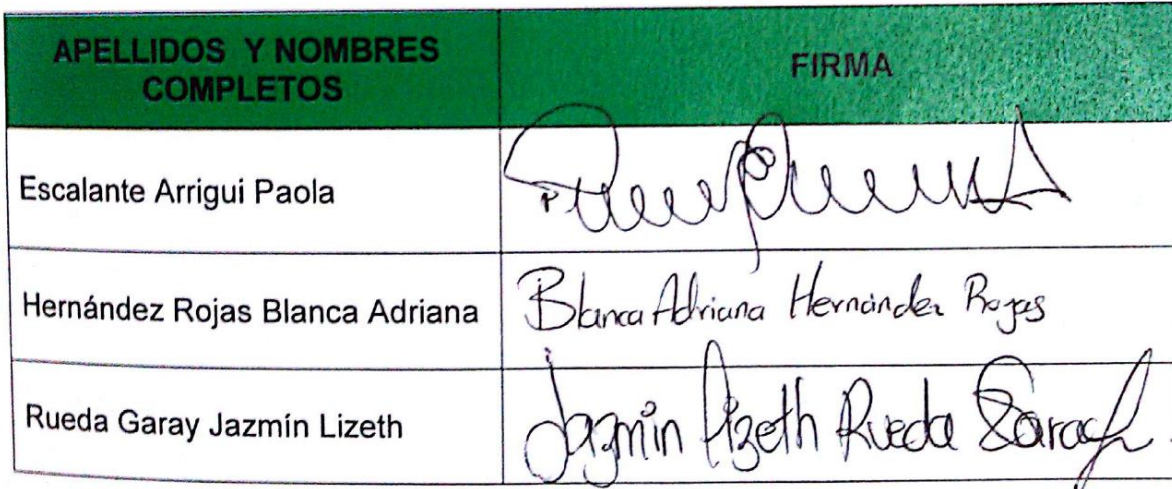 APELLIDOS Y NOMBRES
COMPLETOS
FIRMA
Escalante Arrigui Paola
Hernández Rojas Blanca Adriana
Blanca Adriana Hernández Rojas
Rueda Garay Jazmín Lizeth
Jazmín Lizeth Rueda Garay